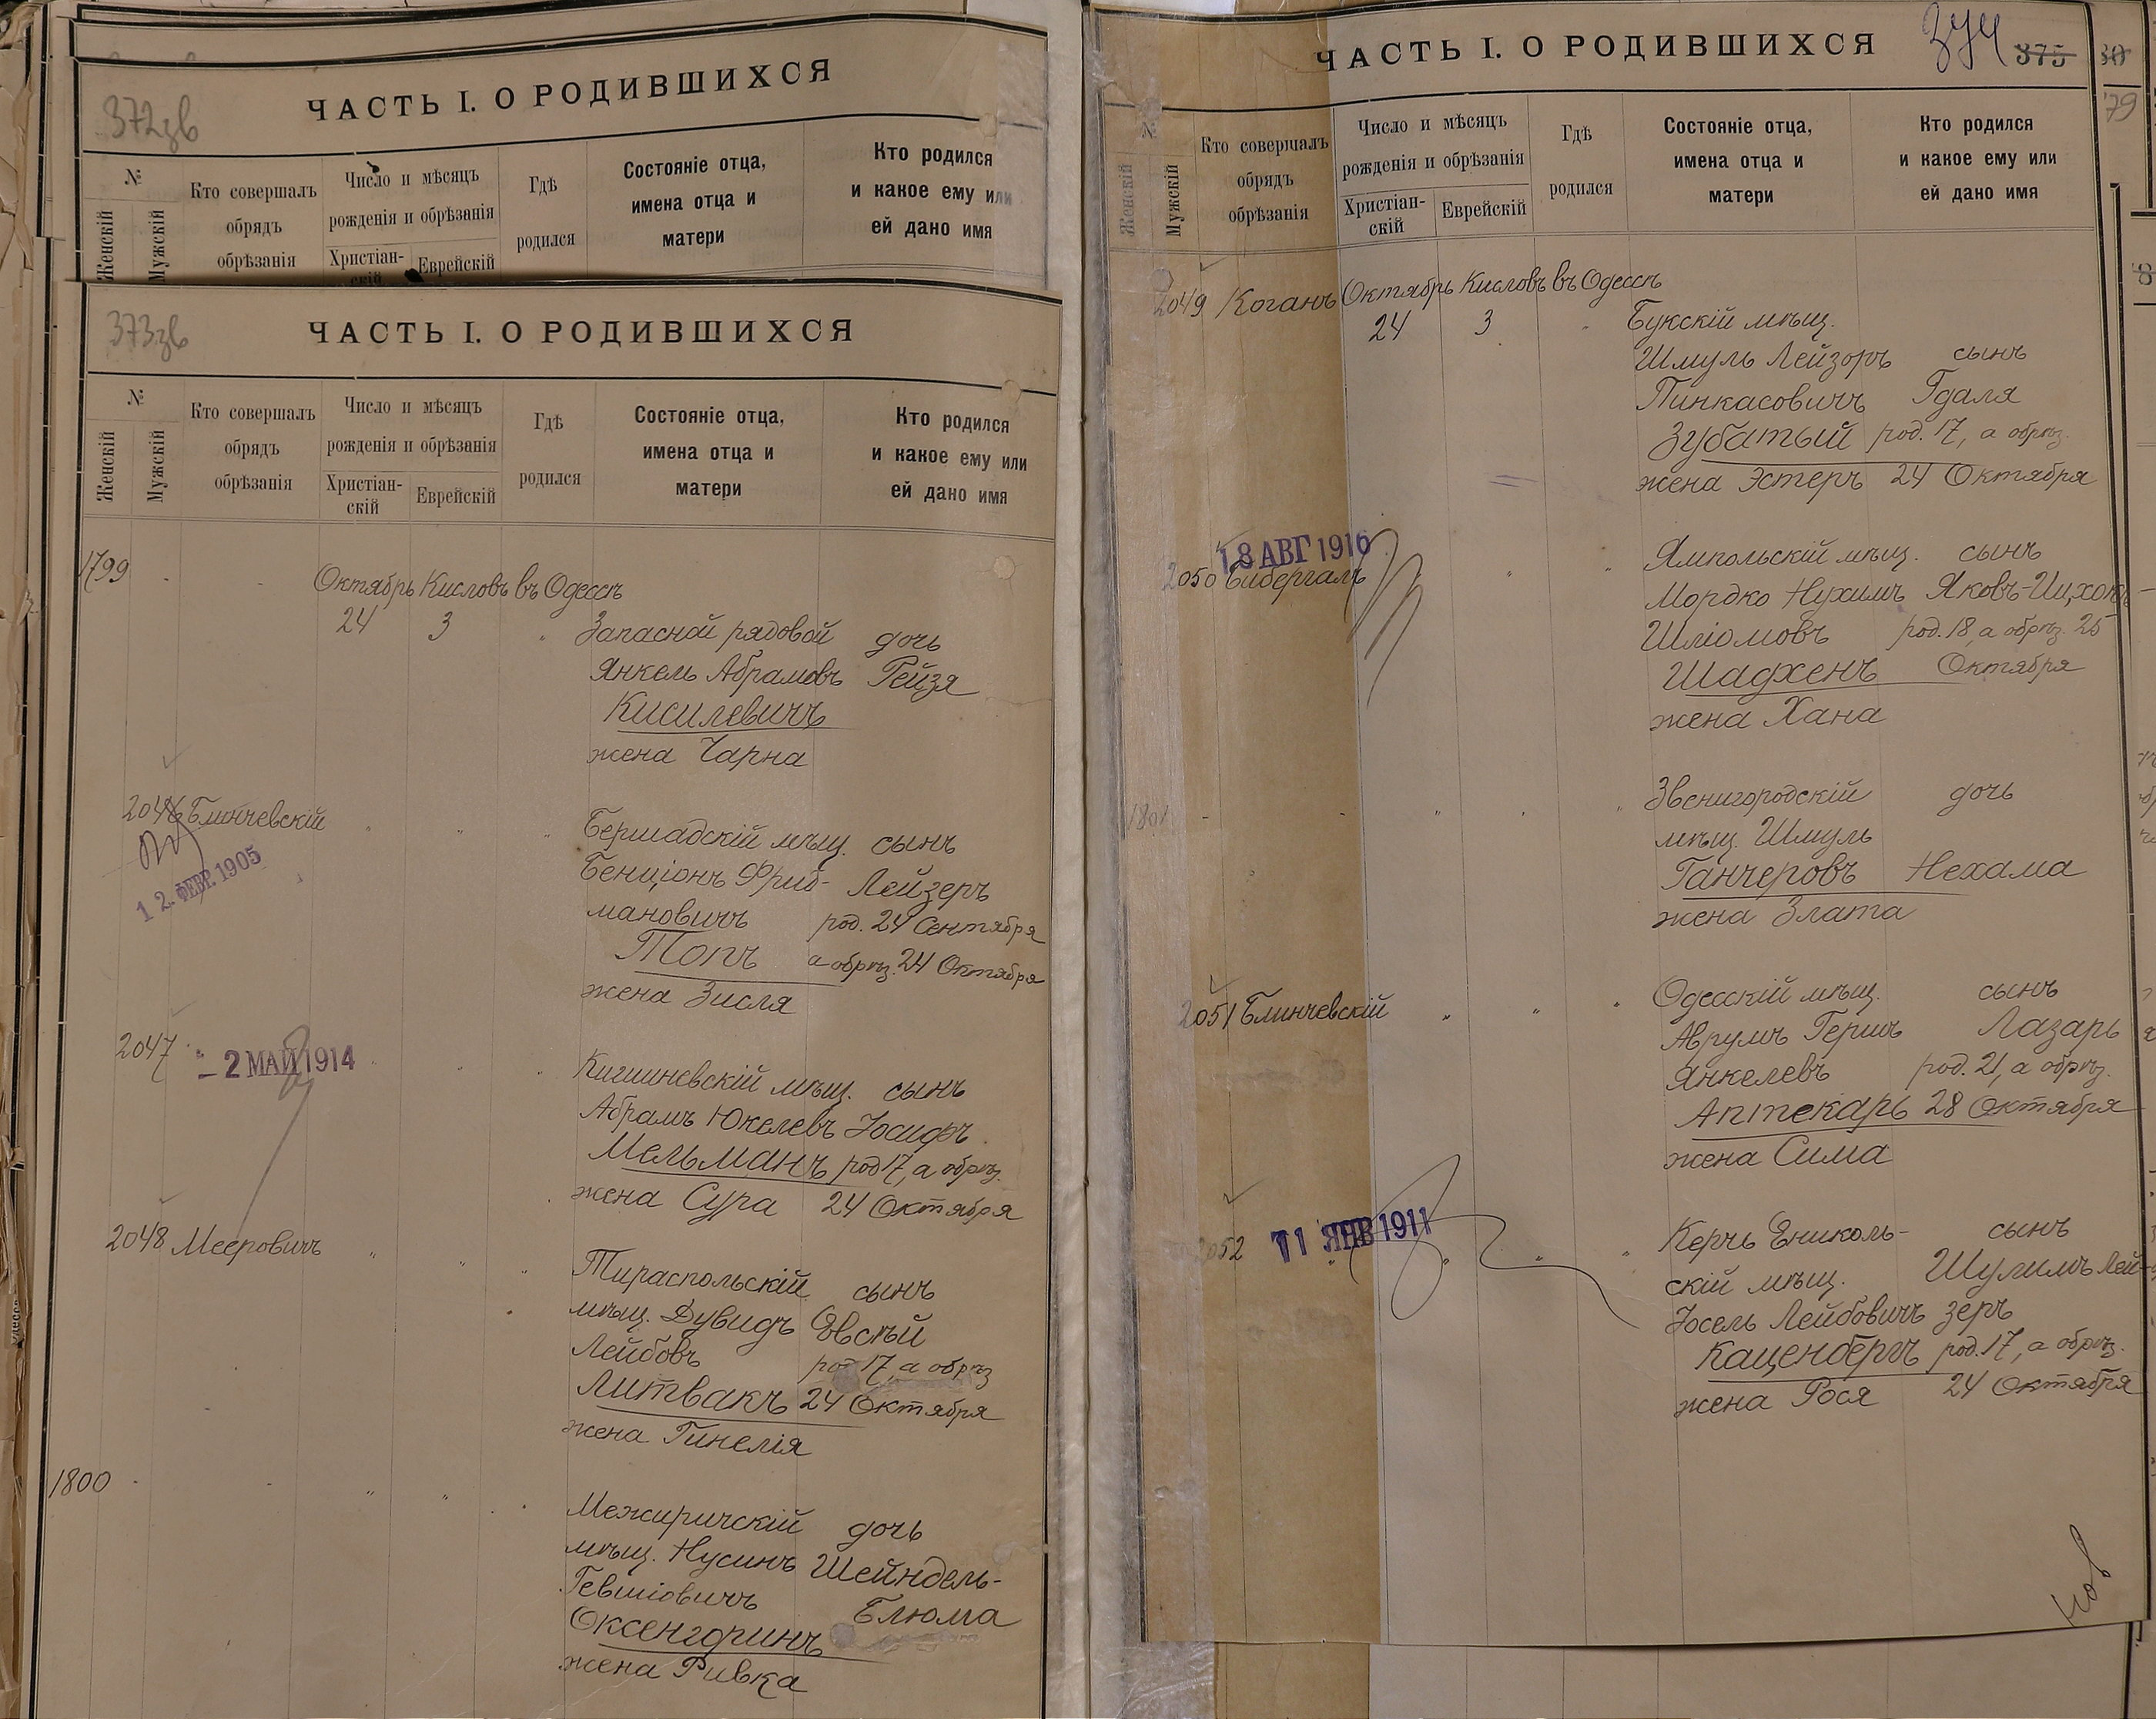 ЧАСТЬ I. О РОДИВШИХСЯ
372зв
№
Женскій
Мужскій
Кто совершалъ
обрядъ
обрѣзанія
Число и мѣсяцъ
рожденія и обрѣзанія
Христіан-
скій
Еврейскій
Гдѣ
родился
Состояніе отца,
имена отца и
матери
Кто родился
и какое ему или
ей дано имя
373зв
ЧАСТЬ I. О РОДИВШИХСЯ
№
Женскій
Мужскій
Кто совершалъ
обрядъ
обрѣзанія
Число и мѣсяцъ
рожденія и обрѣзанія
Христіан-
скій
Еврейскій
Гдѣ
родился
Состояніе отца,
имена отца и
матери
Кто родился
и какое ему или
ей дано имя
1799 Октябрь Кисловъ въ Одессѣ
24 3 " Запасной рядовой дочь
Янкель Абрамовъ Гейзя
Кисилевичъ
жена Чарна
2046 Блинчевскій " " " Бершадскій мѣщ. сынъ
12 ФЕВР. 1905
Бенціонъ Фрид- Лейзеръ
мановичъ род. 24 Сентября
Топъ а обрѣз. 24 Октября
жена Зисля
2047 - 2 МАЙ 1914 Кишиневскій мѣщ. сынъ
Абрамъ Юкелевъ Іосифъ
Мельманъ род 17, а обрѣз.
жена Сура 24 Октября
2048 Мееровичъ " " " Тираспольскій сынъ
мѣщ. Дувидъ Овсѣй
Лейбовъ род 17, а обрѣз
Литвакъ 24 Октября
жена Гинелія
1800 " " Межиричскій дочь
мѣщ. Нусинъ Шейндель-
Гевшіовичъ Блюма
Оксенгоринъ
жена Ривка
ЧАСТЬ I. О РОДИВШИХСЯ
374 375
№
Женскій
Мужскій
Кто совершалъ
обрядъ
обрѣзанія
Число и мѣсяцъ
рожденія и обрѣзанія
Христіан-
скій
Еврейскій
Гдѣ
родился
Состояніе отца,
имена отца и
матери
Кто родился
и какое ему или
ей дано имя
79
2049 Коганъ Октябрь Кисловъ въ Одессѣ
24 3 " Букскій мѣщ.
Шмуль Лейзоръ сынъ
Пинкасовичъ Гдаля
Зубатый род. 17, а обрѣз.
жена Эстеръ 24 Октября
18 АВГ 1916
2050 Бибергалъ " " Ямпольскій мѣщ. сынъ
Мордко Нухимъ Яковъ-Ицхокъ
Шліомовъ род. 18, а обрѣз. 25
Шадхенъ Октября
жена Хана
1801 " " " Звенигородскій дочь
мѣщ. Шмуль
Ганчеровъ Нехама
жена Злата
2051 Блинчевскій " " " Одесскій мѣщ. сынъ
Аврумъ Гершъ Лазарь
Янкелевъ род. 21, а обрѣз.
Аптекарь 28 Октября
жена Сима
2052 11 ЯНВ 1911 " " " Керчь Ениколь- сынъ
скій мѣщ. Шулимъ Лей-
Іосель Лейбовичъ зеръ
Каценбергъ род. 17, а обрѣз.
жена Рося 24 Октября